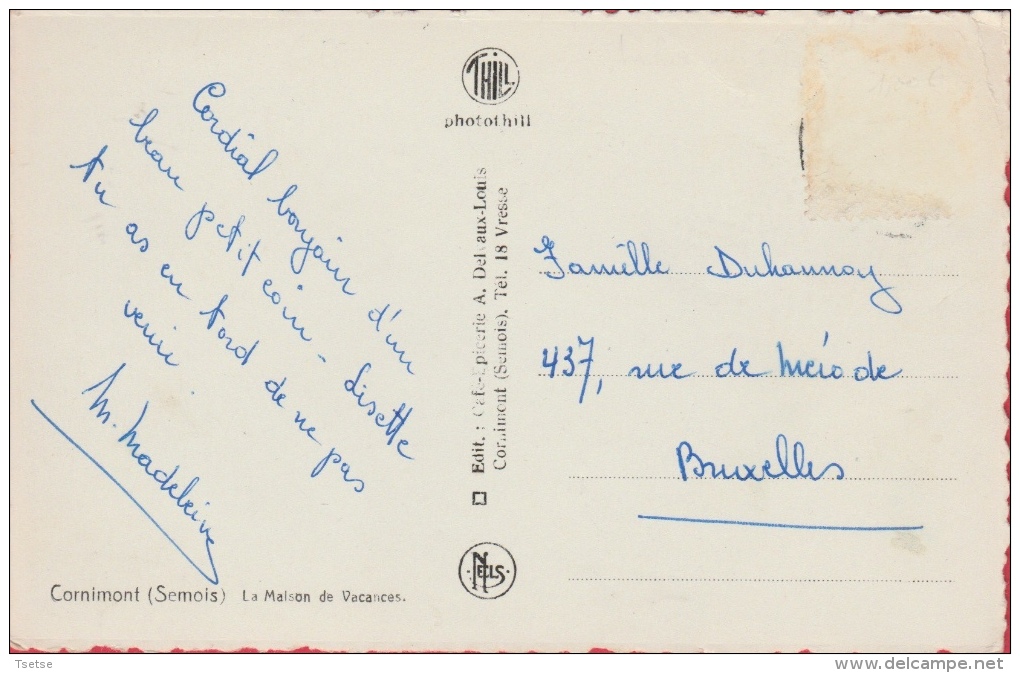 Cordial bonjour d'un
beau petit coin - Lisette
tu as eu tord de ne pas
venir.
M. Madeleine
Cornimont (Semois) La Maison de Vacances.
THILL
photothill
Edit. : Café-Epicerie A. Delvaux-Louis
Cornimont (Semois). Tél. 18 Vresse
NELS
Famille Duhannoy
437, rue de Mérode
Bruxelles
Tsetse
www.delcampe.net